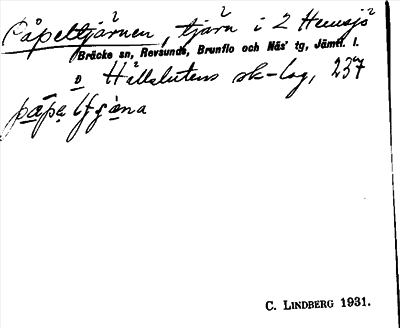 Påpeltjärnen, tjärn i 2 Hemsjö
Bräcke sn, Revsunds, Brunflo och Näs' tg, Jämtl. l.
o Hällslutens sk-lag, 237
C. LINDBERG 1931.